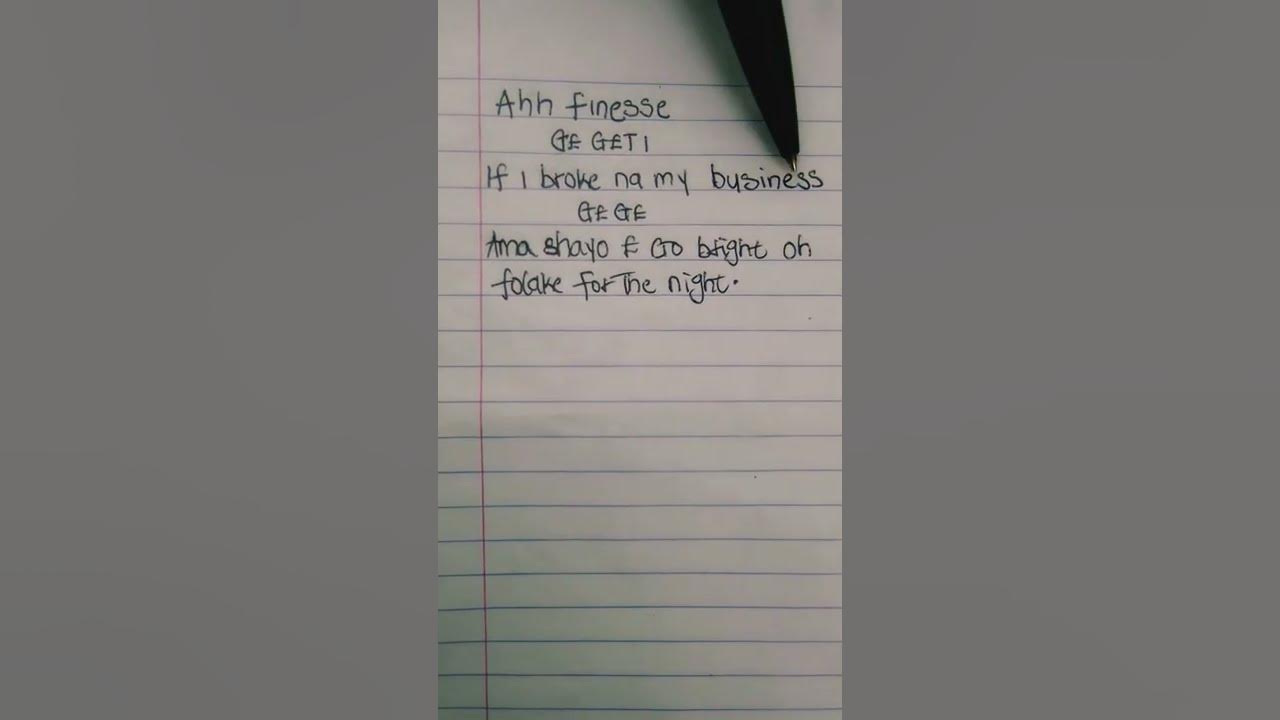 Ahh finesse
GE GETI
If I broke na my business
GE GE
Ama shayo E Go bright oh
folake for The night.